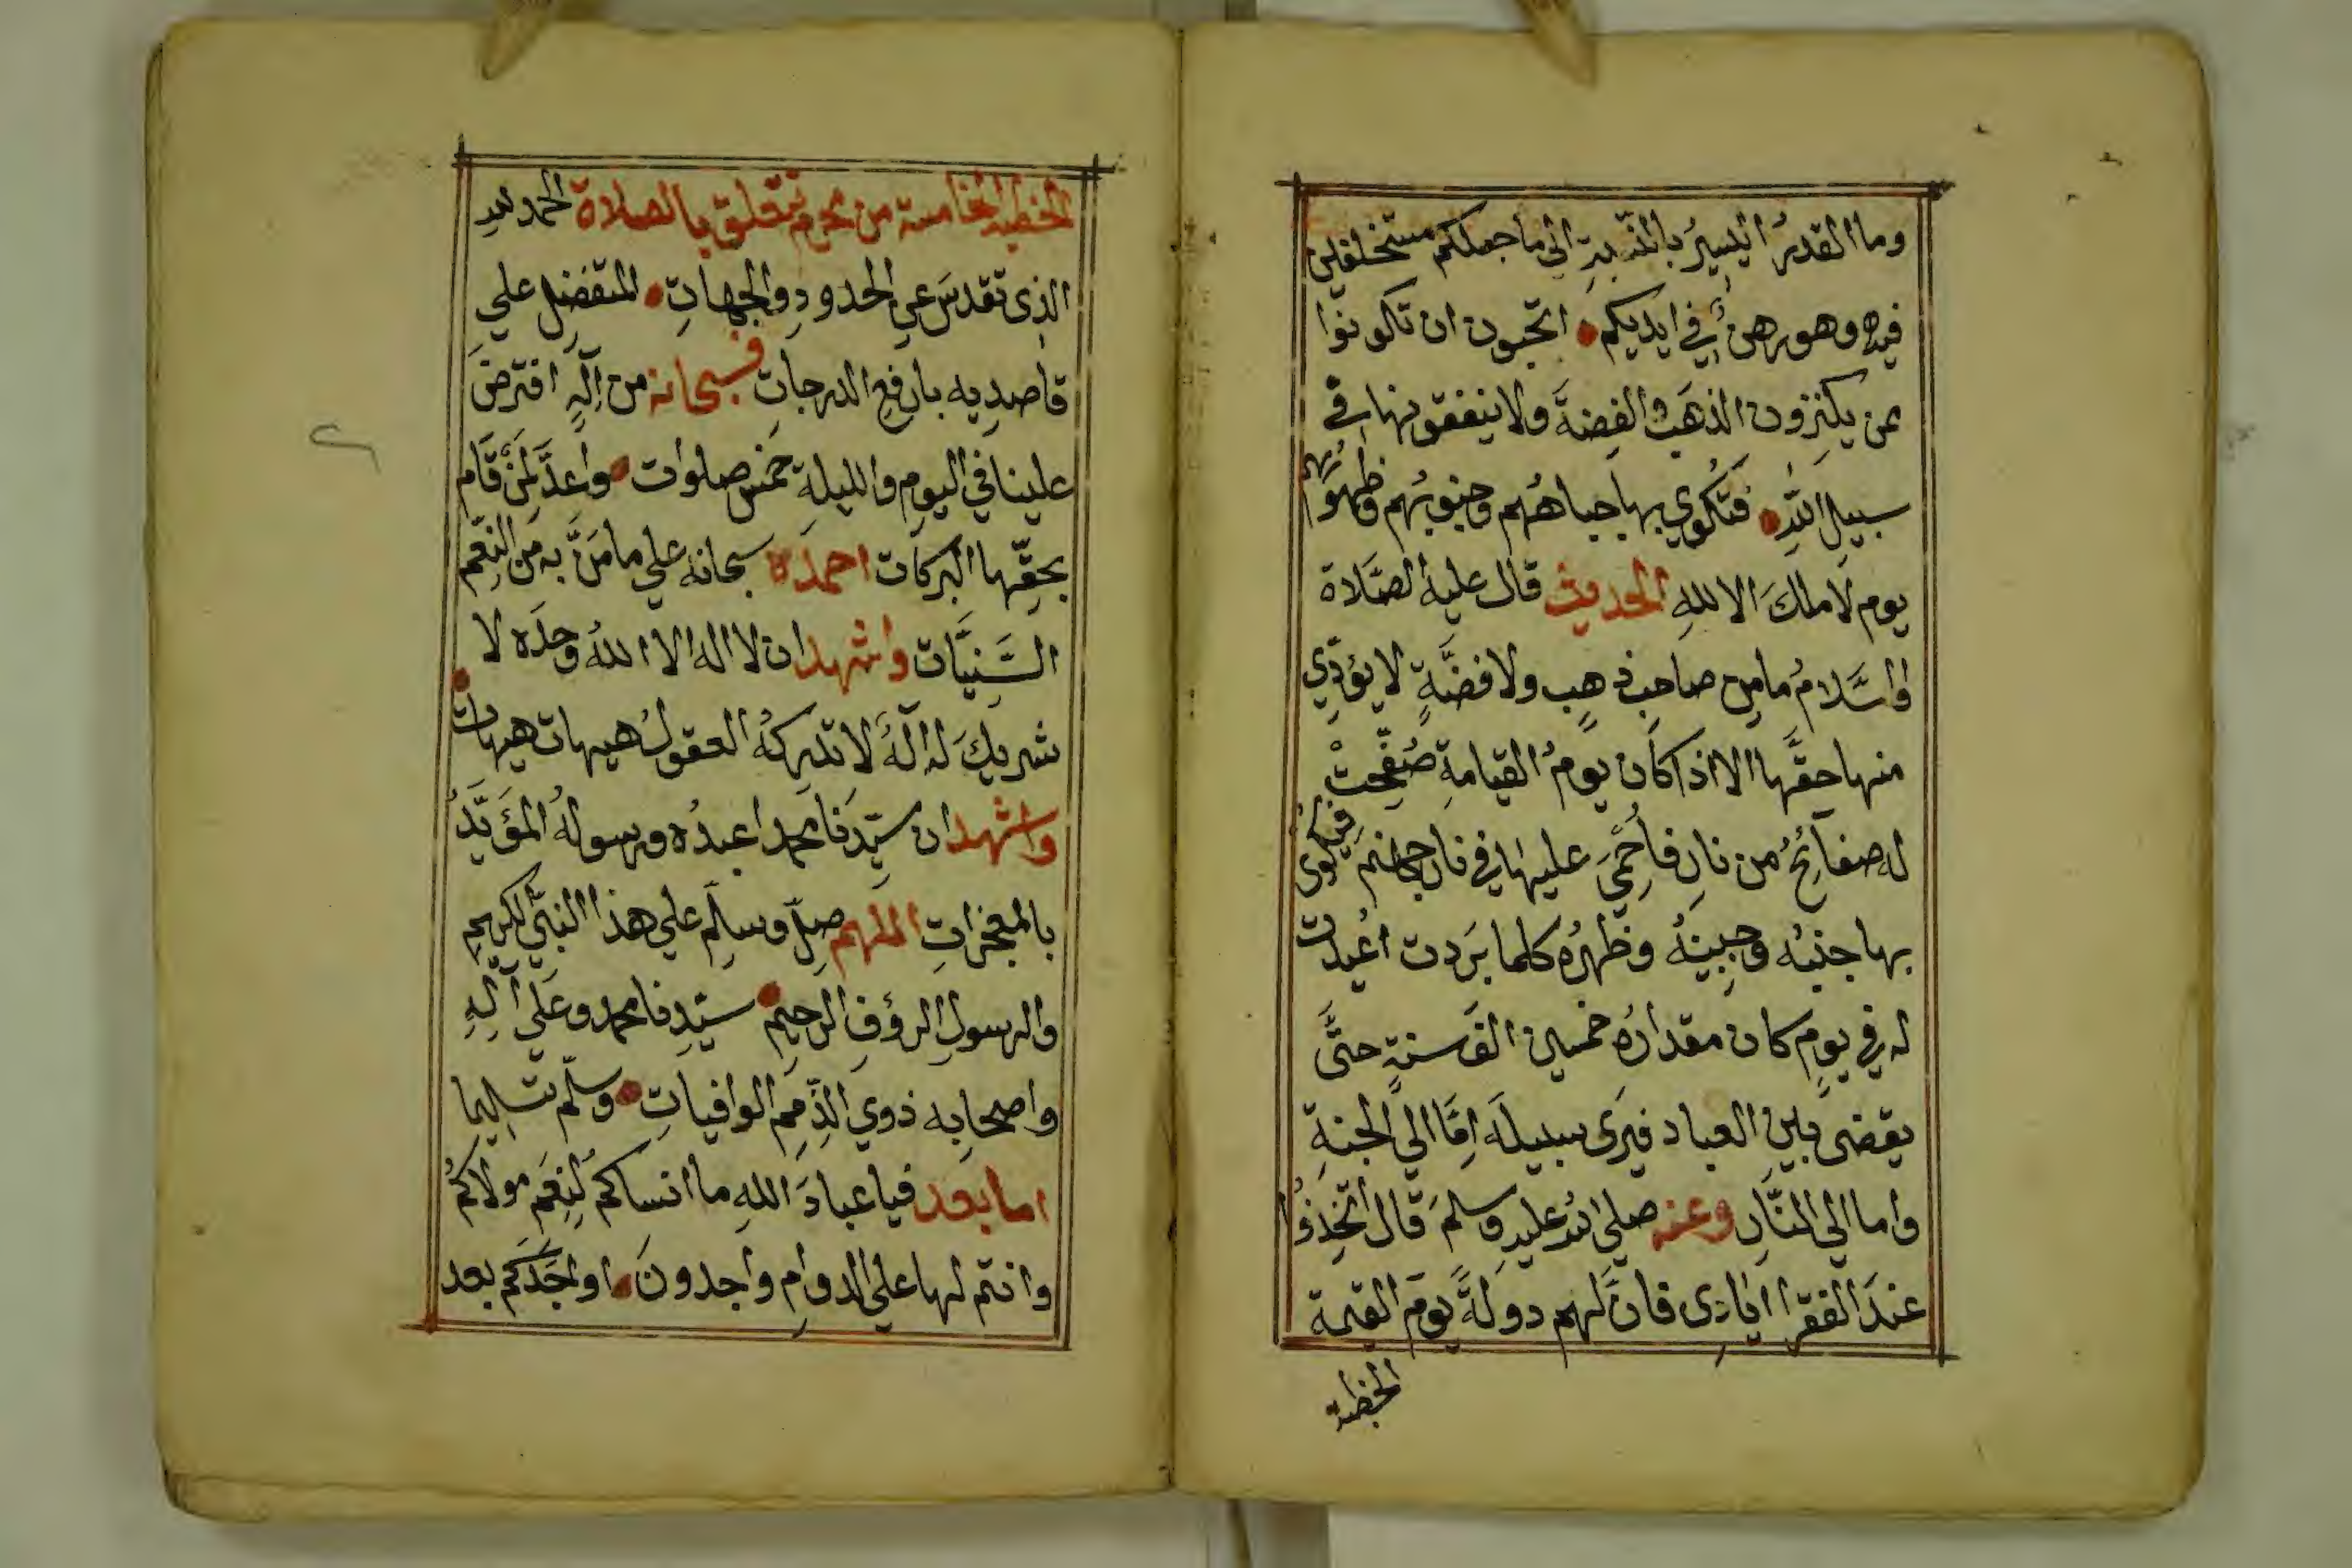 وما القدرُ اليسيرُ بالنسبةِ الي ما جعلكم مستخلفين
فيه وهو رهنٌ في ايديكم • اتحبون ان تكونوا
ممن يكنزون الذهَبَ والفِضةَ ولا ينفقونها في
سبيلِ اللهِ • فتُكوي بها جباهُهم وجنوبُهم وظهورُهم
يوم لا مالكَ الا للهِ الحديث قال عليه الصَّلاة
والسَّلامُ ما من صاحبِ ذهبٍ ولا فضَّةٍ لا يؤدِّي
منها حقَّها الا اذا كان يومُ القيامةِ صُفِّحتْ
له صفائِحُ من نارٍ فأُحْمِيَ عليها في نارِ جهنمَ فيُكوى
بها جنبُه وجبينُه وظهرُه كلما بَردت اُعيدت
له في يومٍ كان مقدارُه خمسين الفَ سنةٍ حتَّى
يقضى بين العبادِ فيَرى سبيلَه اِمَّا الي الجنةِ
واما الي النَّارِ وعنه صلي الله عليه وسلمَ قال اتَّخِذُوا
عندَ الفقرا ايادى فانَّ لهم دولةً يومَ القيمة
الخطبة
الخطبة الخامسة من محرم تتعلق بالصلاة الحمد لله
الذى تقدسَ عن الحدودِ والجهاتِ • المتفَضِل علي
قاصدِيه بارفعِ الدرجاتِ فسبحانه من اِلَهٍ افترضَ
علينا في اليومِ والليلةِ خمسَ صلوات • واعدَّ لمَنْ قَام
بحقِّها البركات احمدُه سبحانه علي ما مَنَّ به من النِعَم
السَّنِيَّات واشهد ان لا اله الا اللهُ وحدَه لا
شريكَ له اِلهٌ لا تدْرِكهُ العقولُ هيهات هيهات •
واشهد ان سيِّدَنا محمدا عبدُه ورسولُه المؤَيَّدُ
بالمعجزاتِ اللهم صلِّ وسلِّم علي هذا النبيِّ الكريمِ
والرسولِ الرؤفِ الرحيمِ • سيِّدِنا محمد وعلَي آلِهِ
واصحابِه ذوي الذِّمَمِ الوافياتِ • وسلِّم تسليما
اما بعد فيا عبادَ اللهِ ما انساكُم لِنِعَمِ مولاكُم
وانتم لها علي الدوامِ واجدونَ • اوجَدَكُم بعد